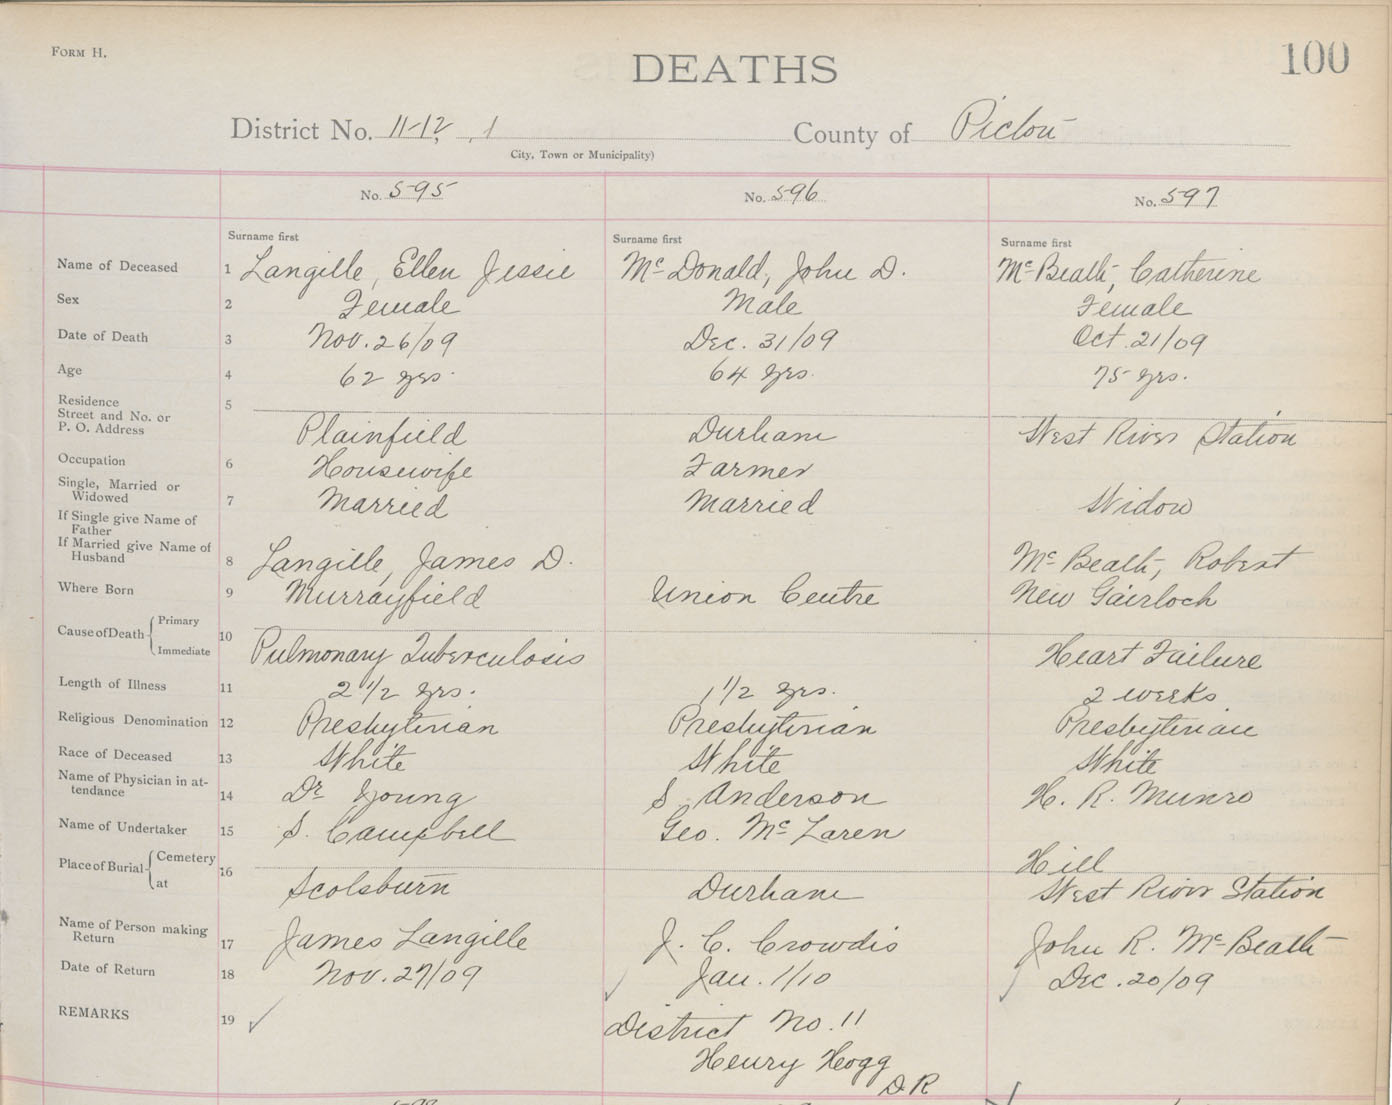 FORM H.
DEATHS
100
District No. 11-12, 1
County of Pictou
City, Town or Municipality)
No. 595
No. 596
No. 597
Surname first
Surname first
Surname first
Name of Deceased 1 Langille, Ellen Jessie McDonald, John D. McBeath, Catherine
Sex 2 Female Male Female
Date of Death 3 Nov. 26/09 Dec. 31/09 Oct. 21/09
Age 4 62 yrs. 64 yrs. 75 yrs.
Residence 5
Street and No. or
P. O. Address Plainfield Durham West River Station
Occupation 6 Housewife Farmer
Single, Married or
Widowed 7 Married Married Widow
If Single give Name of
Father
If Married give Name of
Husband 8 Langille, James D. McBeath, Robert
Where Born 9 Murrayfield Union Centre New Gairloch
Cause of Death Primary 10
Immediate Pulmonary Tuberculosis Heart Failure
Length of Illness 11 2 1/2 yrs. 1 1/2 yrs. 2 weeks
Religious Denomination 12 Presbyterian Presbyterian Presbyterian
Race of Deceased 13 White White White
Name of Physician in at-
tendance 14 Dr Young S. Anderson H. R. Munro
Name of Undertaker 15 S. Campbell Geo. McLaren
Place of Burial Cemetery 16 Hill
at Scotsburn Durham West River Station
Name of Person making
Return 17 James Langille J. C. Crowdis John R. McBeath
Date of Return 18 Nov. 27/09 Jan. 1/10 Dec. 20/09
REMARKS 19 District No. 11
Henry Hogg
D R